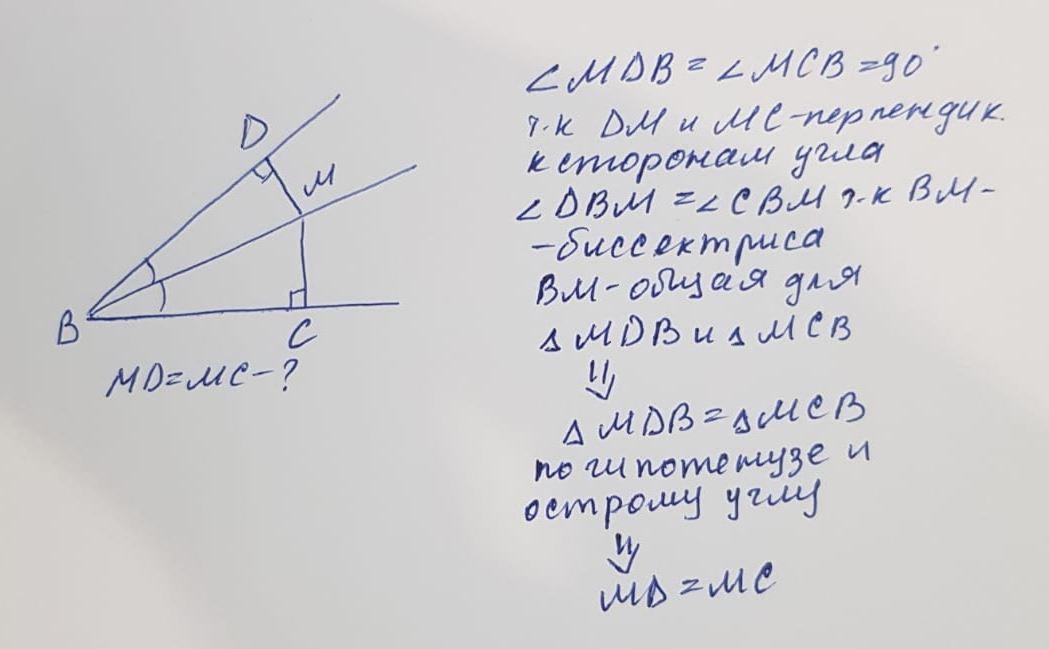 D
M
B
C
MD=MC-?
∠MDB = ∠MCB =90°
т.к DM и MC-перпендик.
к сторонам угла
∠DBM =∠CBM т.к BM-
-биссектриса
BM-общая для
△MDB и △MCB
⇓
△MDB=△MCB
по гипотенузе и
острому углу
⇓
MD=MC